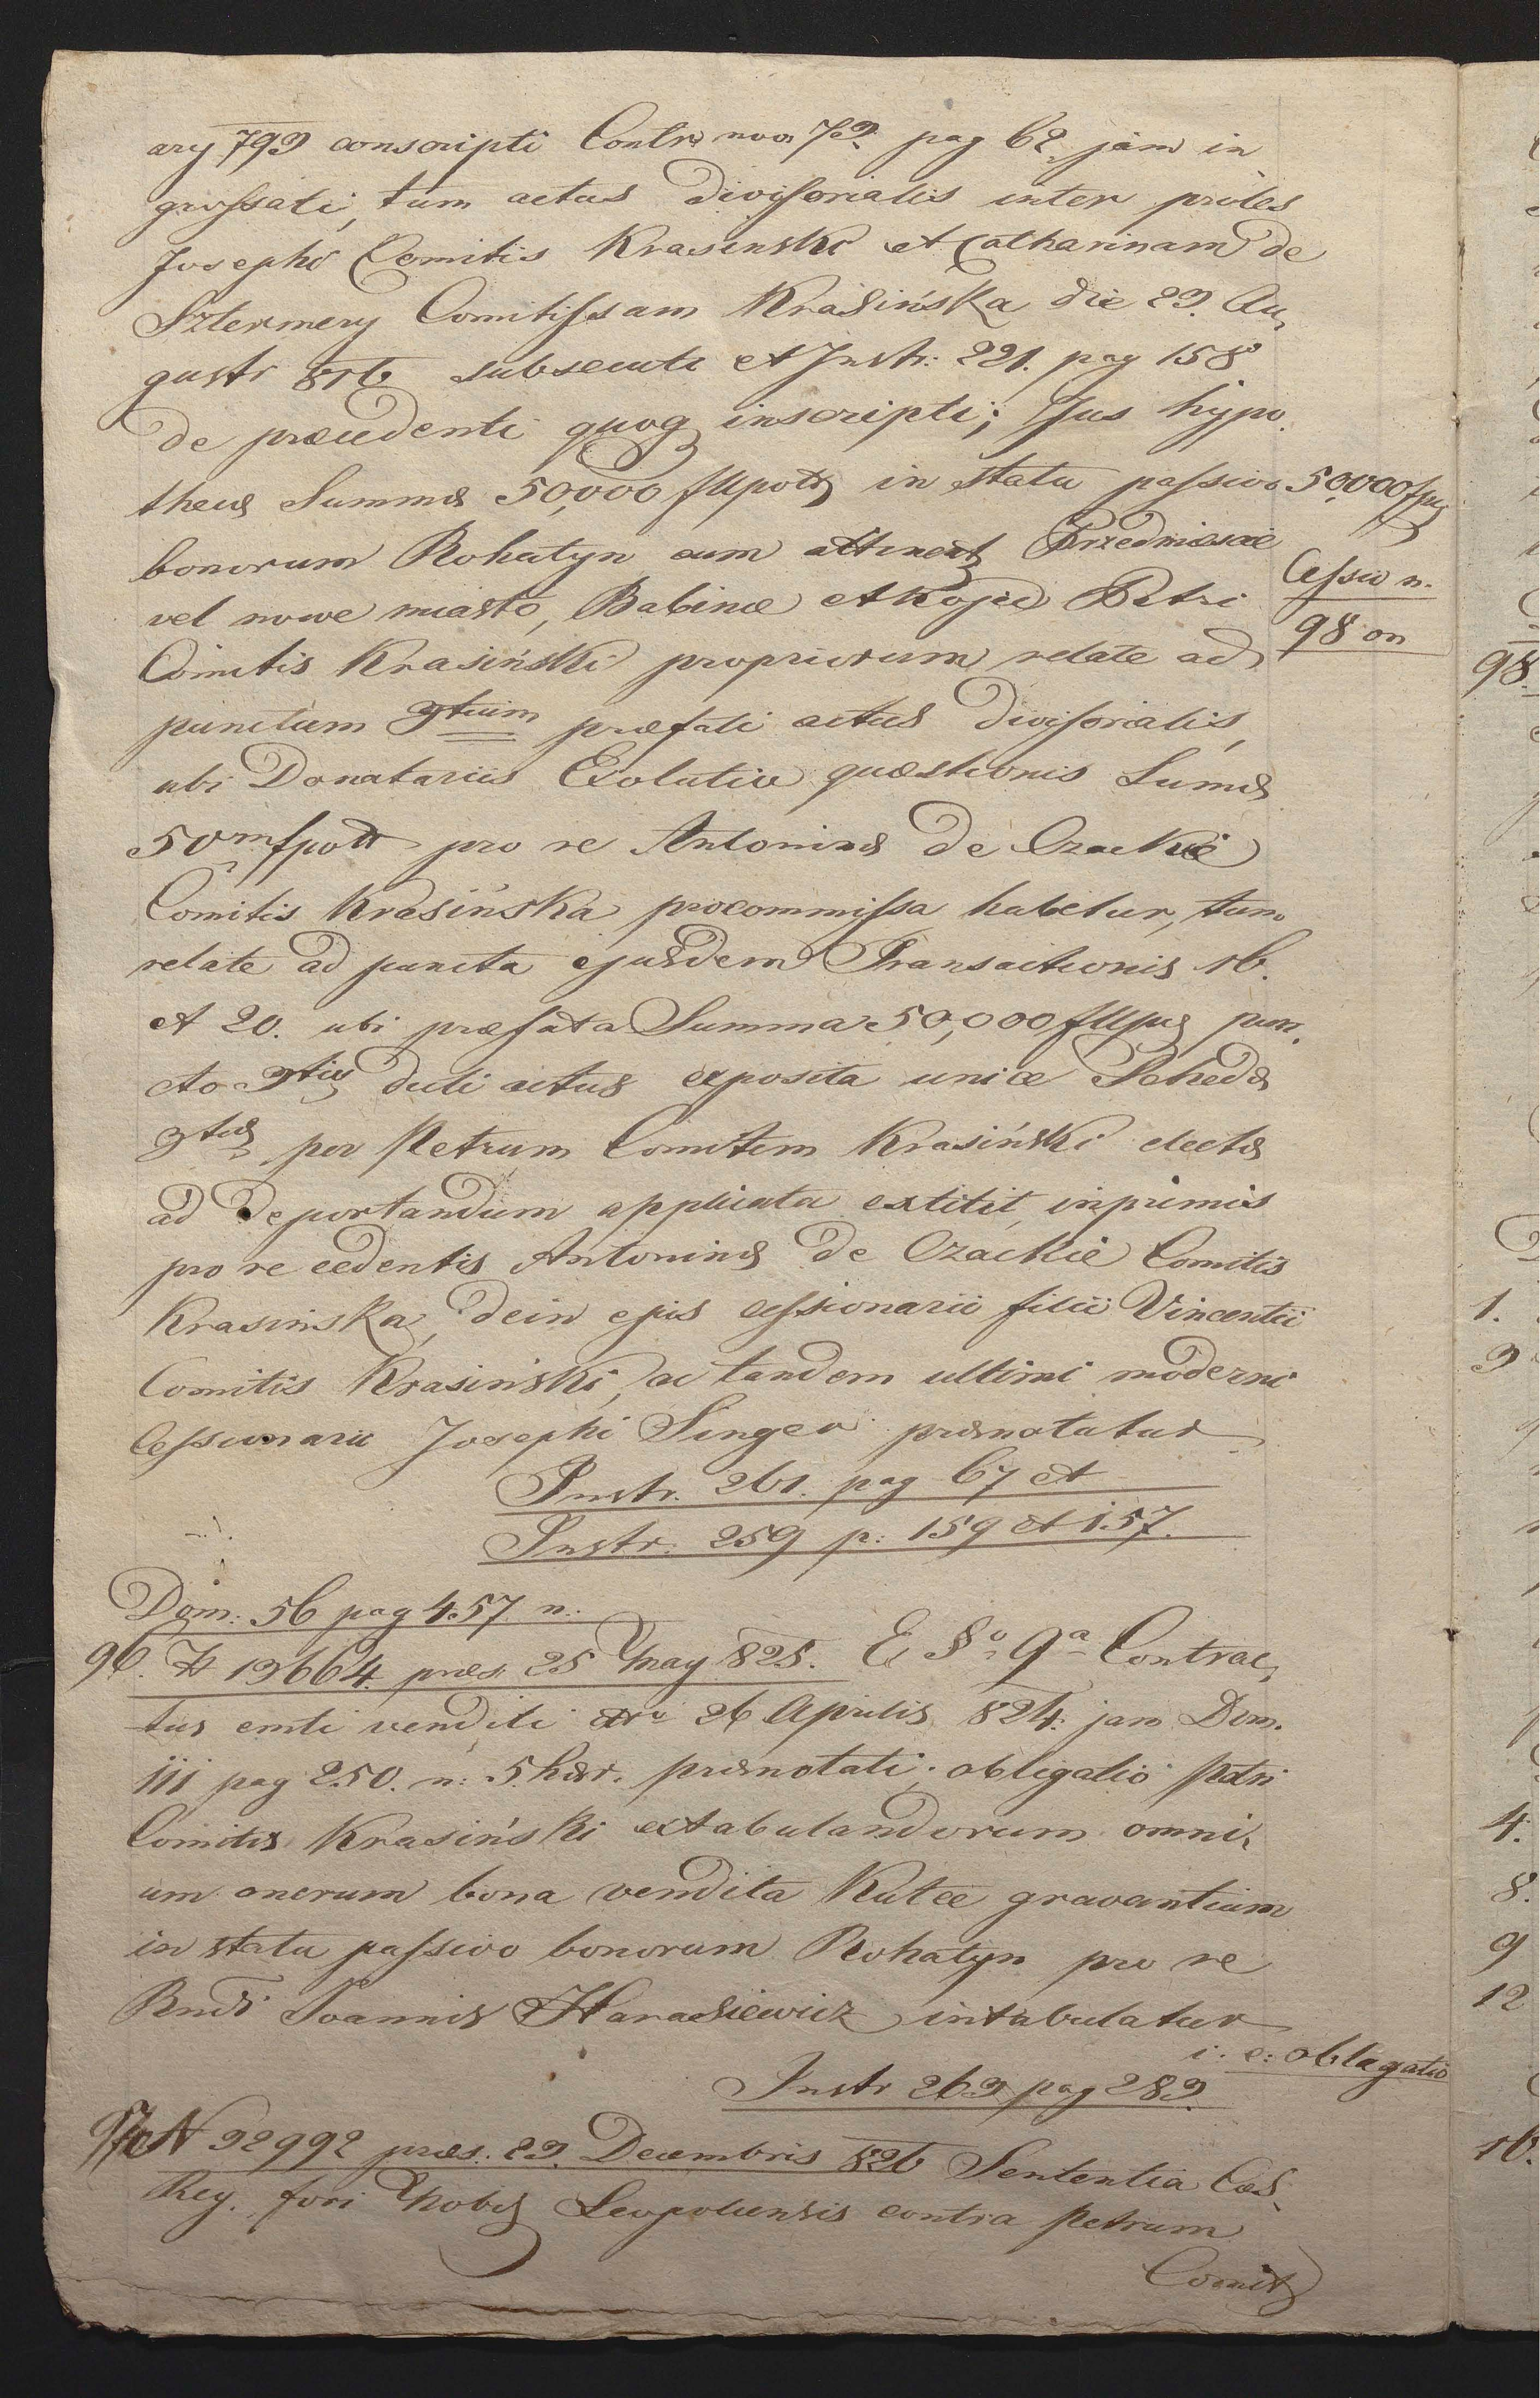 ary 793 conscripti Contr: nov: 73. pag 62 jam in
grossati, tum actus divisorialis inter proles
Josephi Comitis Krasinski et Catharinam de
Szlermery Comitissam Krasińska die 23. Au,
gusti 816 subsecuti et Instr: 221. pag 158
de præcedenti quoq inscripti; Jus hypo,
thecæ Summæ 50,000 in statu passivo
50,000
bonorum Rohatyn cum attinent Przedmiescie
Cessio n.
vel nowe miasto, Babince et Petri
98 on
Comitis Krasiński propriorum relate ad
punctum 3tium præfati actus divisorialis,
ubi Donatariis Exolutio quæstionis Sumæ
50m pro re Antoninæ de Czackie
Comitis Krasińska procommissa habetur, tum
relate ad puncta ejusdem Transactionis 16.
et 20. ubi præfata Summa 50,000 pun,
cto 3tio dicti actus exposita unice Schedæ
3tiæ per Petrum Comitem Krasiński electæ
ad deportandum applicata extitit, inprimis
pro re cedentis Antoninæ de Czackie Comitis
Krasinska, dein ejus cessionarii filii Vincentii
Comitis Krasiński, ac tandem ultimi moderni
Cessionarii Josephi Singer prænotatur
Instr. 261. pag 67 et
Instr. 259 p: 159 et 157.
Dom: 56 pag 457 n:
96. N 13664. præs. 25 May 825. E §o 9a Contrac,
tus emti venditi dto 26 Aprilis 824. jam Dom.
111 pag 250. n: 5 hær. prænotati, obligatio Petri
Comitis Krasiński extabulandorum omni,
um onerum bona vendita Kutce gravantium
in statu passivo bonorum Rohatyn pro re
Rndi Joannis Harasiewicz intabulatur
i: e: obligatio
Instr 263 pag 283.
97 N 32992 præs. 23. Decembris 826 Sententia Cæs.
Reg. fori Nobil Leopoliensis contra Petrum
Comit